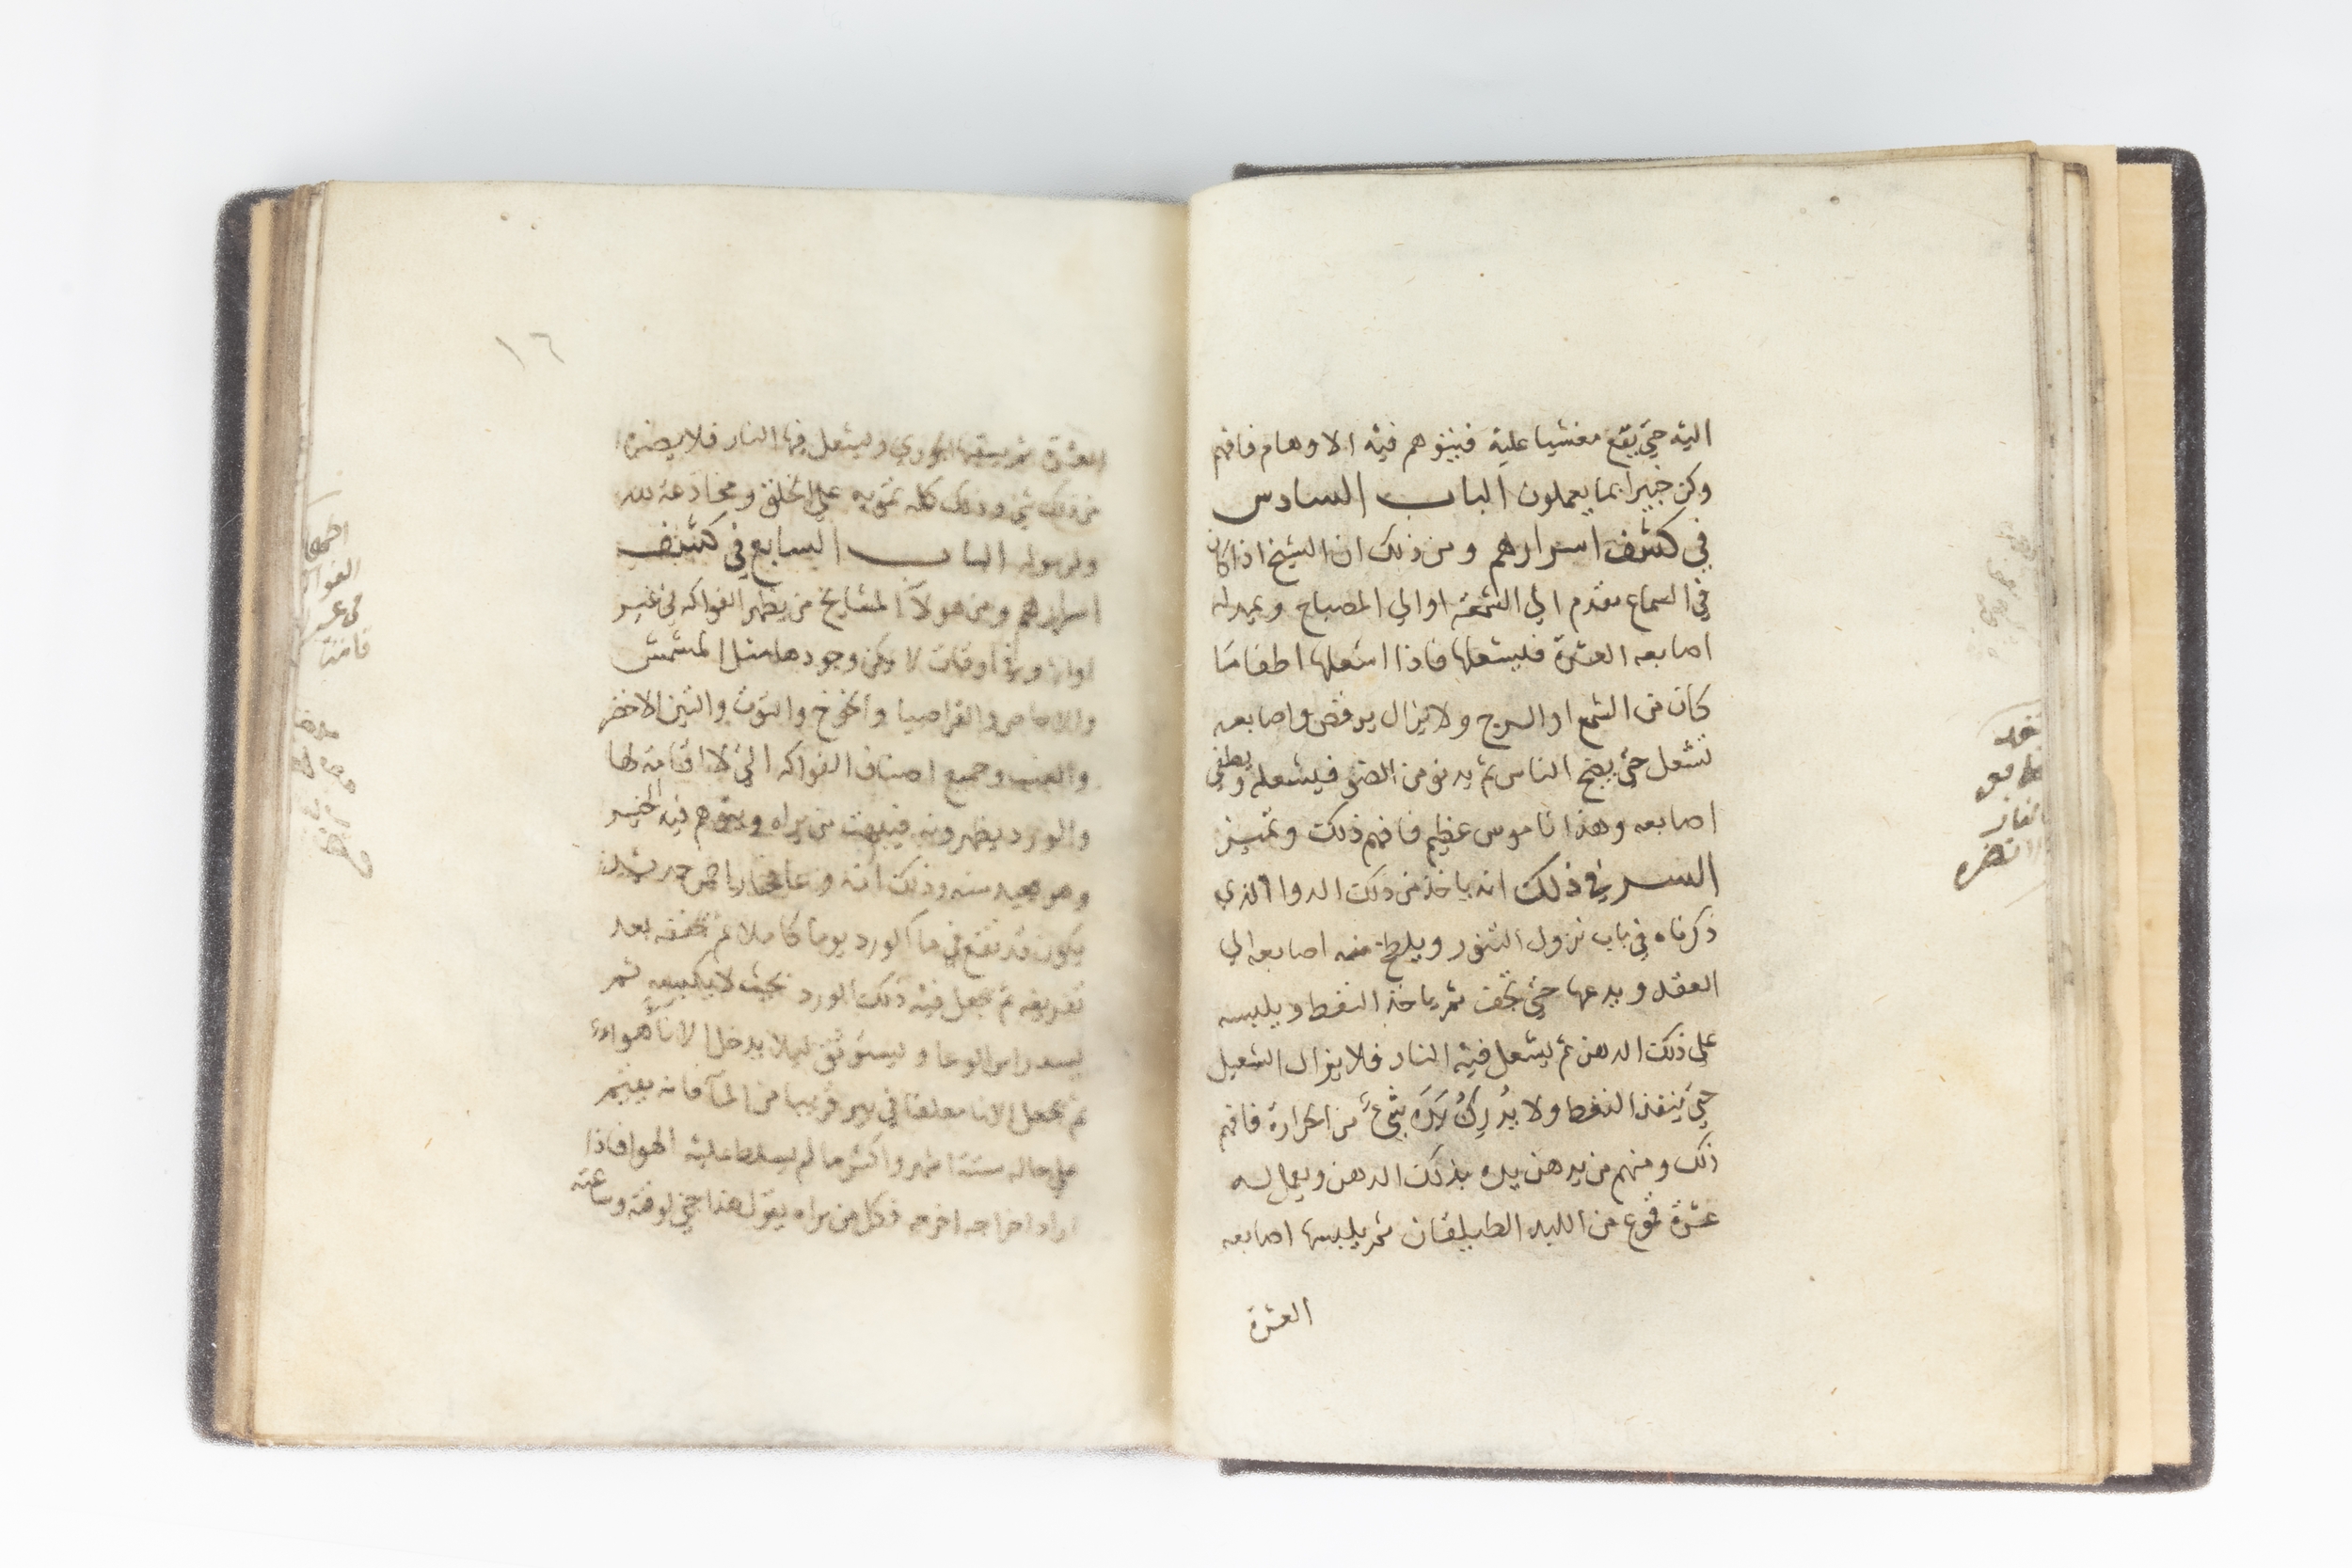 اليه حتي يقع مغشيا عليه فيتوهم فيه الاوهام فافهم
وكن خبيرا بما يعملون الباب السادس
في كشف اسرارهم ومن ذلك ان الشيخ اذا كان
في السماع تقدم الي الشمعة او الي المصباح ويمد له
اصابعه العشرة فليشعلها فاذا اشعلها اطفا ما
كان من الشمع او السرج ولا يزال يرقص واصابعه
تشعل حتي يضج الناس ثم يدنو من الضو فيشعله ويطفي
اصابعه وهذا ناموس عظيم فافهم ذلك وتميز
السر في ذلك انه ياخذ من ذلك الدوا الذي
ذكرناه في باب نزول التنور ويلطخ منه اصابعه الي
العقد ويدعها حتي تجف ثم ياخذ النفط ويلبسه
علي ذلك الدهن ثم يشعل فيه النار فلا يزال الشعيل
حتي ينفذ النفط ولا يدرك يده بشيء من الحرارة فافهم
ذلك ومنهم من يدهن يده بذلك الدهن ويعمل له
عشرة قموع من اللبد الطيلقان ثم يلبسها اصابعه
العشرة
١٦
العشرة ثم يسقيها ويشعل فيها النار فلا يضره
من ذلك شي وذلك كله تمويه علي الخلق ومخادعة لله
ولرسوله الباب السابع في كشف
اسرارهم ومن هولاء المشايخ من يظهر الفواكه في غير
اوانها وفي اوقات لا يمكن وجودها مثل المشمش
والاجاص والقراصيا والخوخ والتوت والتين الاخضر
والعنب وجميع اصناف الفواكه التي لا اقامة لها
والورد يظهرونه فيبهت من يراه ويتوهم فيه الخير
وهو بعيد منه وذلك انه
يكون قد نقع في ماء الورد يوما كاملا ثم يجففه بعد
تفريغه ثم يجعل فيه ذلك الورد بحيث لا يكبسه ثم
يسد راس الوعا ويستوثق ليلا يدخل الانا هواء
ثم يجعل الانا معلقا في بير قريبا من الماء فانه يقيم
علي حاله ستة اشهر واكثر ما لم يسلط عليه الهوا فاذا
اراد اخراجه اخرجه فكل من يراه يقول هذا جني لوقته وساعته